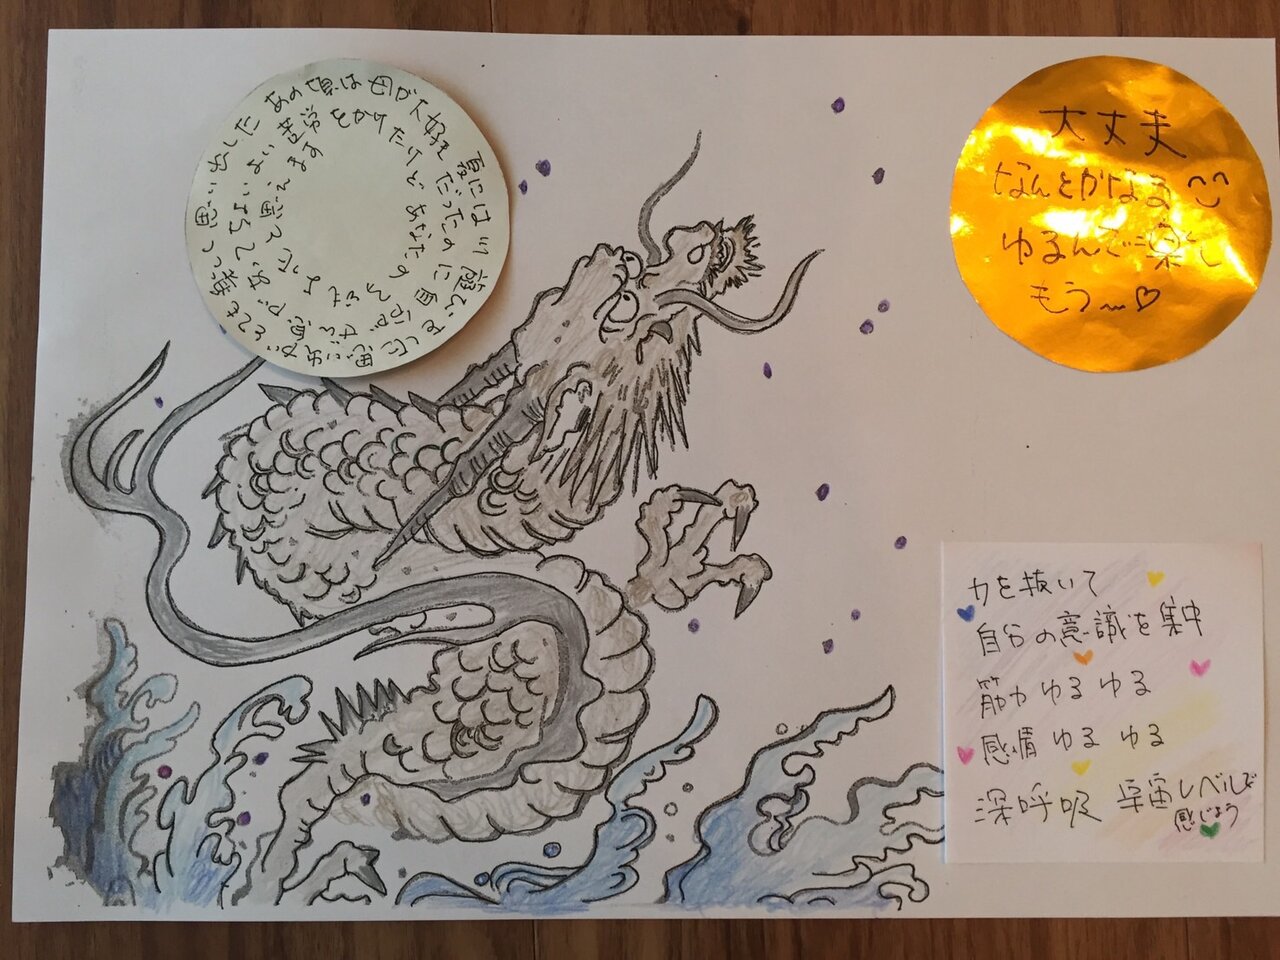 夏には川遊びをした思い出がとても
思い出した あの頃は母が大好き
だったのに 自分がぜん息があって
苦労をかけたけど あなたの
思えます
大丈夫
なんとかなる
ゆるんで楽し
もう〜♡
力を抜いて
自分の意識を集中
筋力 ゆる ゆる
感情 ゆる ゆる
深呼吸 宇宙レベルで
感じよう